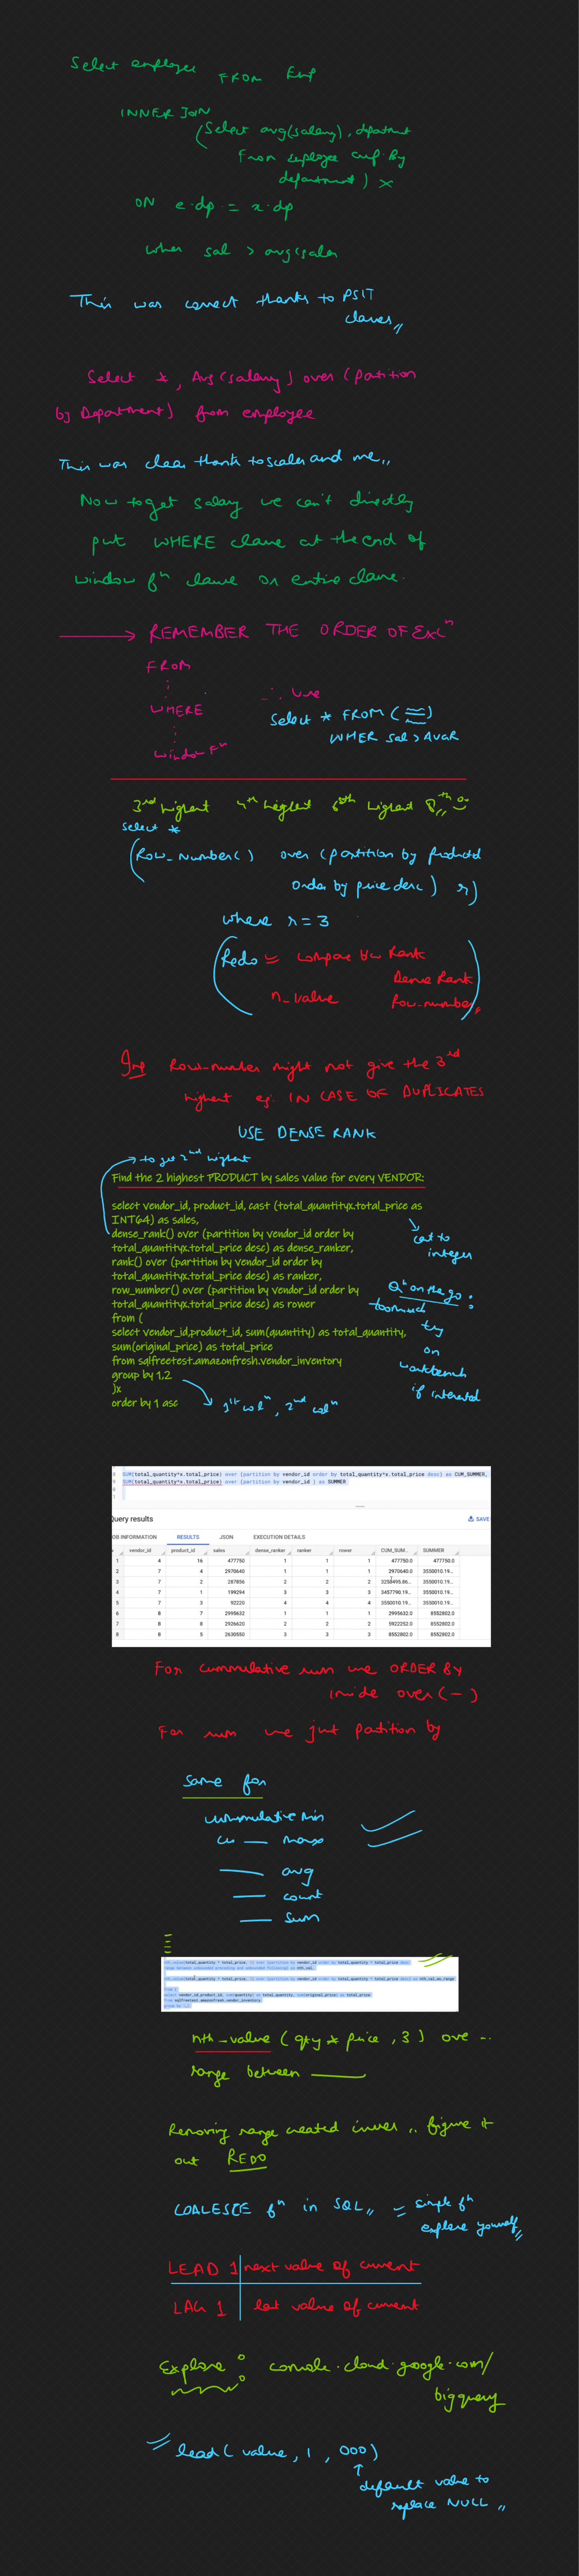 Select employee FROM Emp
INNER JOIN
(Select avg(salary), dpatmnt
From eeployee
By
department) x
ON e.dp = x.dp
when sal > avg(salar
This was correct thanks to PSIT
classes,,
Select *, Avg (salary) over (partition
by Department) from employee
This was clear thank to scaler and me,,
Now to get salary we can't directly
put WHERE clause at the end of
window fn clause or entire clause.
REMEMBER THE ORDER OF EXCn
FROM
WHERE
∴ Use
Select * FROM ( )
WHER Sal > AVGR
window Fn
3rd highest 4th highest 6th highest 8th
select *
(Row_Number() over (partition by productid
order by price desc) r)
where r = 3
(Redo = compare b/w Rank
Dense Rank
n_value Row-number,,
Imp Row-number might not give the 3rd
highest eg. IN CASE OF DUPLICATES
USE DENSE RANK
→ to get 2nd highest
Find the 2 highest PRODUCT by sales value for every VENDOR:
select vendor_id, product_id, cast (total_quantityx.total_price as
INT64) as sales,
dense_rank() over (partition by vendor_id order by
total_quantityx.total_price desc) as dense_ranker,
rank() over (partition by vendor_id order by
total_quantityx.total_price desc) as ranker,
row_number() over (partition by vendor_id order by
total_quantityx.total_price desc) as rower
from (
select vendor_id,product_id, sum(quantity) as total_quantity,
sum(original_price) as total_price
from sqlfreetest.amazonfresh.vendor_inventory
group by 1,2
)x
order by 1 asc
cat to
integer
Qn on the go :
try
on
workbench
if interested
1st coln, 2nd coln
8 SUM(total_quantity*x.total_price) over (partition by vendor_id order by total_quantity*x.total_price desc) as CUM_SUMMER,
9 SUM(total_quantity*x.total_price) over (partition by vendor_id ) as SUMMER
Query results
SAVE
JOB INFORMATION RESULTS JSON EXECUTION DETAILS
vendor_id product_id sales dense_ranker ranker rower CUM_SUM... SUMMER
1 4 16 477750 1 1 1 477750.0 477750.0
2 7 4 2970640 1 1 1 2970640.0 3550010.19...
3 7 2 287856 2 2 2 3258495.86... 3550010.19...
4 7 1 199294 3 3 3 3457790.19... 3550010.19...
5 7 3 92220 4 4 4 3550010.19... 3550010.19...
6 8 7 2995632 1 1 1 2995632.0 8552802.0
7 8 8 2926620 2 2 2 5922252.0 8552802.0
8 8 5 2630550 3 3 3 8552802.0 8552802.0
For cummulative sum use ORDER BY
inside over(-)
For sum use just partition by
Same for
cummulative min
cu — max
— avg
— count
— sum
nth_value(total_quantity * total_price, 1) over (partition by vendor_id order by total_quantity * total_price desc
range between unbounded preceding and unbounded following) as nth_val,
from (
select vendor_id,product_id, sum(quantity) as total_quantity, sum(original_price) as total_price
from sqlfreetest.amazonfresh.vendor_inventory
group by 1,2
nth_value (qty * price, 3) ove ..
range between
Removing range created issues .. figure it
out REDO
COALESCE fn in SQL,, = simple fn
explore yourself,,
LEAD 1 next value of current
LAG 1 last value of current
Explore : console.cloud.google.com/
bigquery
lead( value, 1, 000)
↑
default value to
replace NULL ,,